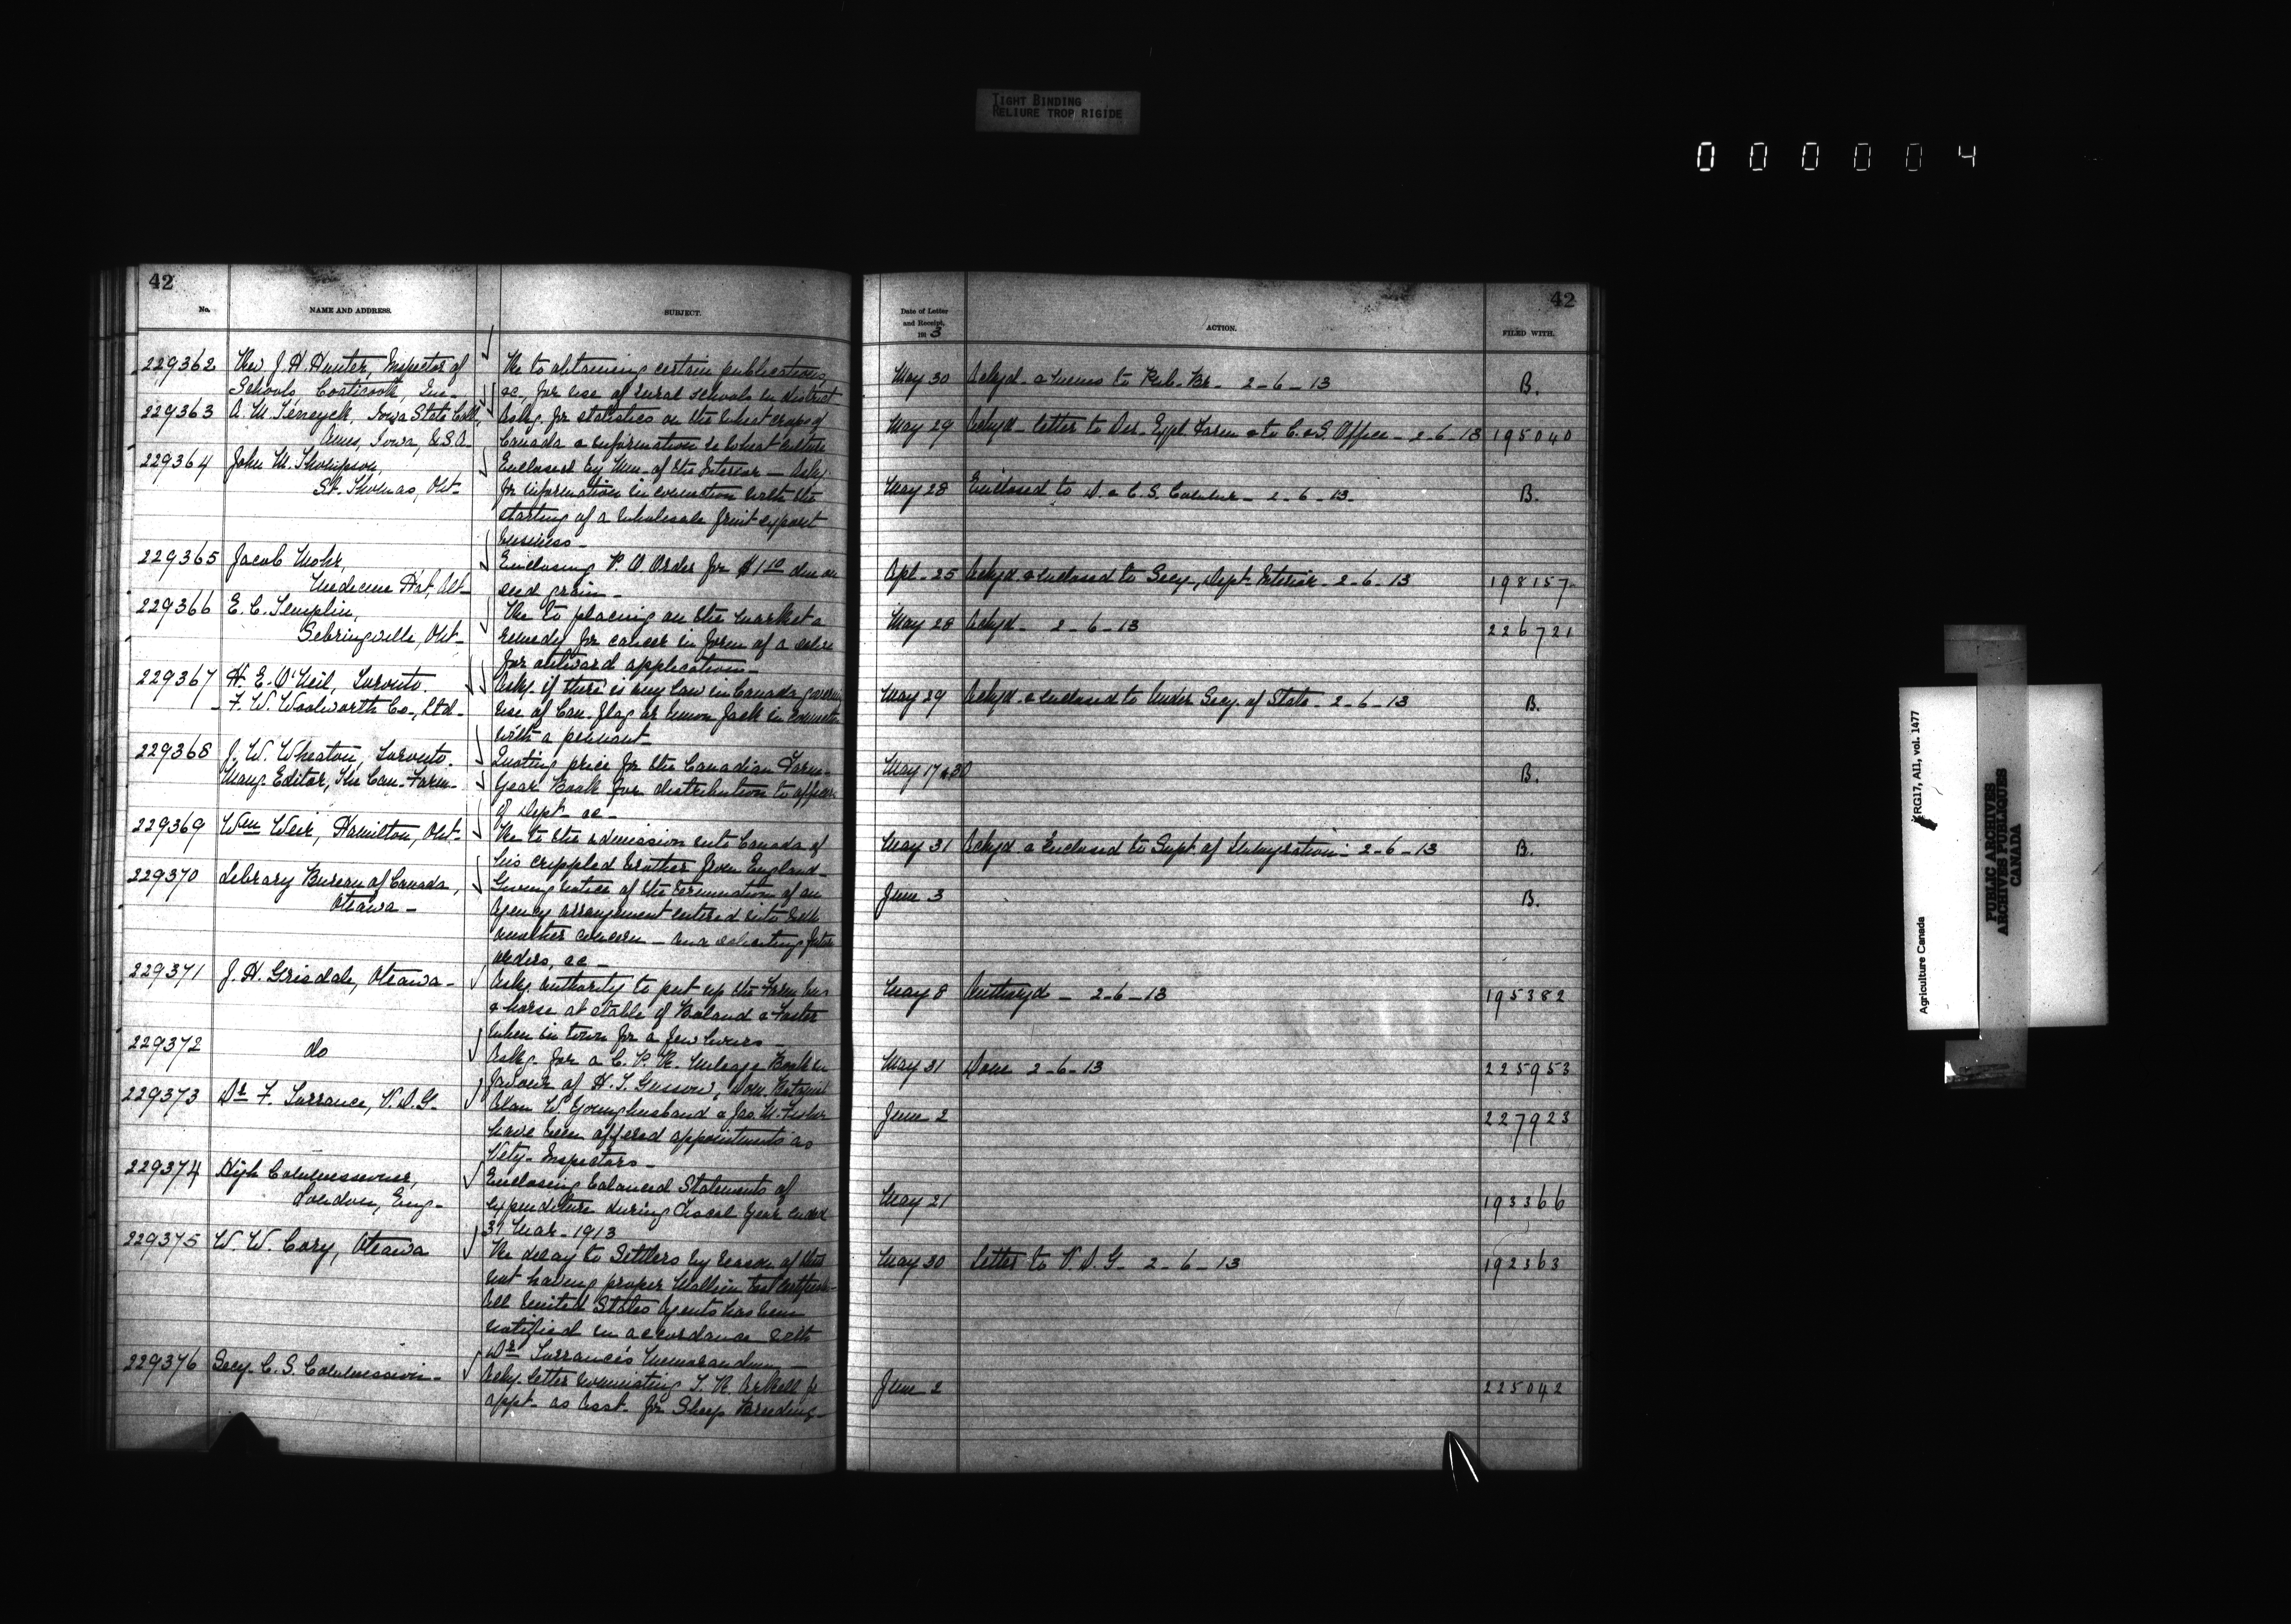 TIGHT BINDING
RELIURE TROP RIGIDE
000004
42
No.
NAME AND ADDRESS.
SUBJECT.
229362
Rev J. H. Hunter, Inspector of
Schools, Coaticook, Que-
Re to obtaining certain publications,
&c, for use of rural schools in district
229363
A. M. Teneyck, Iowa State Coll,
Ames, Iowa, U.S.A-
Askg. for statistics on the wheat crops of
Canada & information re wheat culture
229364
John M. Thompson,
St. Thomas, Ont-
Enclosed by Min. of the Interior - Askg.
for information in connection with the
starting of a wholesale fruit export
business-
229365
Jacob Mohr,
Medicine Hat, Alt-
Enclosing P. O. Order for $1.10 due on
seed grain-
229366
E. C. Templin,
Sebringville, Ont-
Re to placing on the market a
remedy for cancer in form of a salve
for outward application-
229367
H. E. O'Neil, Toronto.
- F. W. Woolworth Co., Ltd-
Askg. if there is any law in Canada
use of Can. flag or Union Jack in connection
with a pennant-
229368
J. W. Wheaton, Toronto.
Mang. Editor, The Can. Farm-
Quoting price for the Canadian Farm-
Year Book for distribution to officers
of Dept. &c-
229369
Wm Weir, Hamilton, Ont-
Re to the admission into Canada of
his crippled brother from England-
229370
Library Bureau of Canada,
Ottawa-
Giving notice of the termination of an
agency arrangement entered into with
another concern - and soliciting future
orders, &c-
229371
J. H. Grisdale, Ottawa-
Askg. authority to put up the Farm bus
& horse at stable of Boland & Foster
when in town for a few hours
229372
do
Askg. for a C. P. R. Mileage Book in
favour of H. T. Gussow, Dom. Botanist
229373
Dr F. Torrance, V.D.G.
Alan W. Younghusband & Jas. M. Fisher
have been offered appointments as
Vety- Inspectors-
229374
High Commissioner,
London, Eng-
Enclosing balanced Statements of
expenditure during Fiscal Year ended
31 Mar- 1913
229375
W. W. Cory, Ottawa
Re delay to Settlers by reason of their
not having proper Mallein test certificate-
All United States Agents has been
notified in accordance with
Dr Torrance's Memorandum-
229376
Secy. C. S. Commission-
Askg. letter nominating T. R. Arkell for
appt. as Asst. for Sheep Breeding-
42
Date of Letter
and Receipt,
1913
ACTION.
FILED WITH.
May 30 Ackgd. & memo to Pub. Br- 2-6-13 B.
May 29 Ackgd- letter to Dir. Expl. Farm & to C. & S. Office- 2-6-13 195040
May 28 Enclosed to D. & C. S. Commr- 2-6-13- B.
Apl- 25 Ackgd & enclosed to Secy., Dept. Interior- 2-6-13 198157-
May 28 Ackgd- 2-6-13 226721
May 29 Ackgd & enclosed to Under Secy. of State- 2-6-13 B.
May 17 & 30 B.
May 31 Ackgd & Enclosed to Supt. of Immigration- 2-6-13 B.
June 3 B.
May 8 Authorzd- 2-6-13 195382
May 31 Done 2-6-13 225953
June 2 227923
May 21 193366
May 30 Letter to V.D.G- 2-6-13 192363
June 2 225042
Agriculture Canada
RG17, A11, vol. 1477
PUBLIC ARCHIVES
ARCHIVES PUBLIQUES
CANADA